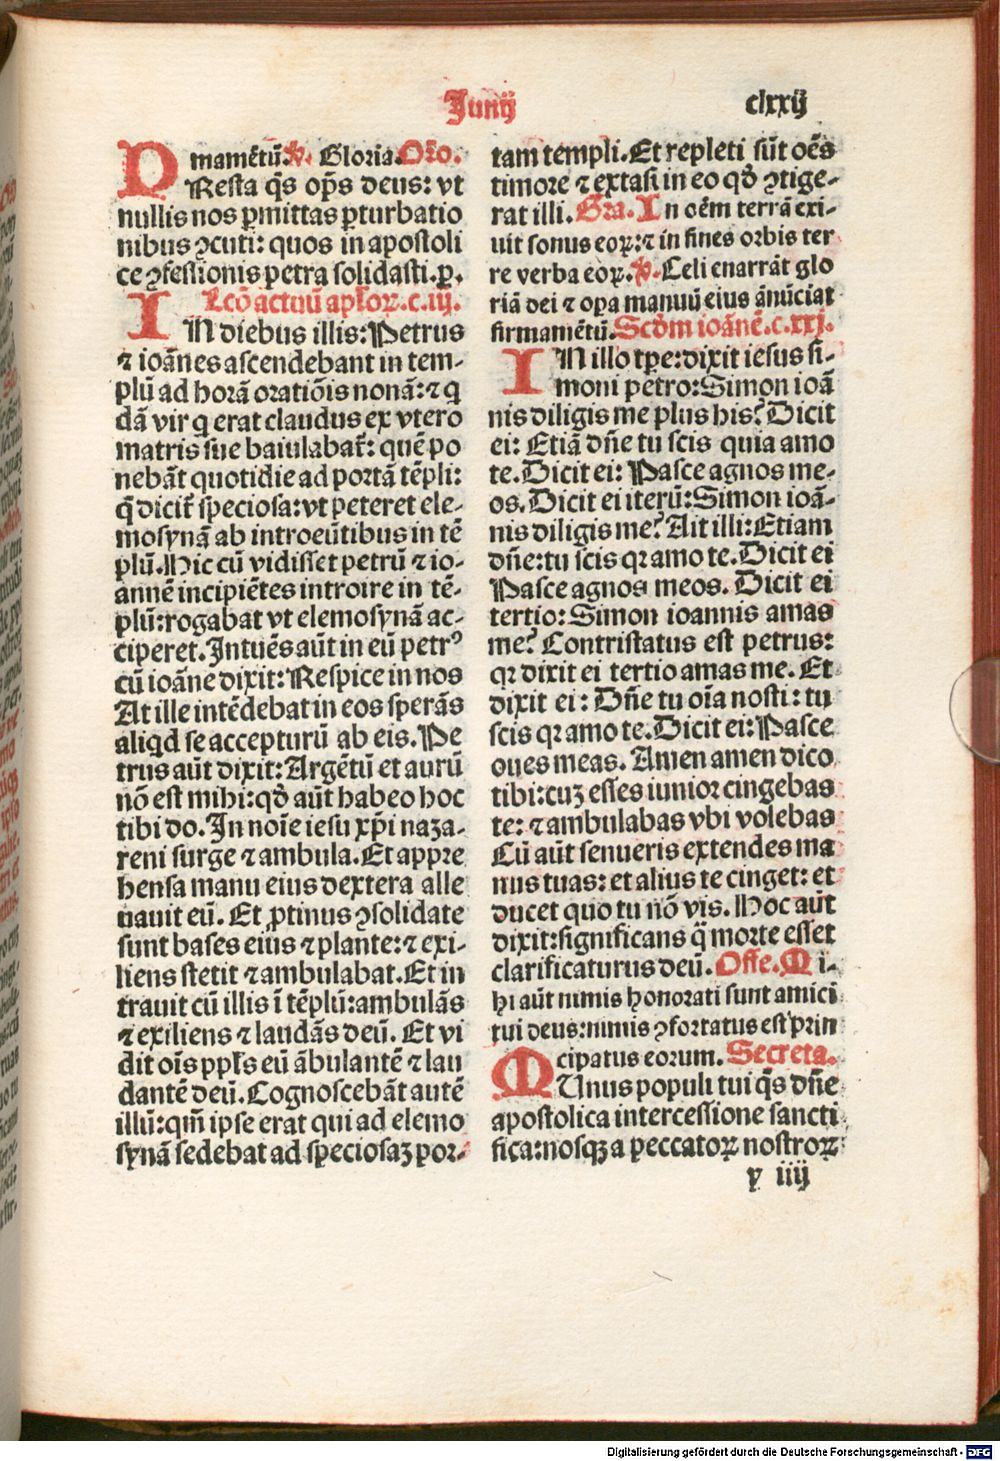 Junij
clxxij
mamẽtũ. ℣. Gloria. Oꝛo.
PResta q̃s op̃s deus: vt
nullis nos ꝑmittas ꝑturbatio
nibus ꝯcuti: quos in apostoli
ce ꝯfessionis petra solidasti. ꝑ.
Lcõ actuũ apl'oꝝ. c. iij.
IN diebus illis: Petrus
⁊ ioãnes ascendebant in tem-
plũ ad horã oratiõis nonã: ⁊ q
dã vir q erat claudus ex vtero
matris sue baiulabat᷑: quẽ po
nebãt quotidie ad portã tẽpli:
q̃ dicit᷑ speciosa: vt peteret ele-
mosynã ab introeũtibus in tẽ
plũ. Hic cũ vidisset petrũ ⁊ io-
annẽ incipiẽtes introire in tẽ-
plũ: rogabat vt elemosynã ac-
ciperet. Intuẽs aũt in eũ petrꝰ
cũ ioãne dixit: Respice in nos
At ille intẽdebat in eos sperãs
aliqd se accepturũ ab eis. Pe
trus aũt dixit: Argẽtũ et aurũ
nõ est mihi: qđ aũt habeo hoc
tibi do. In noĩe iesu xp̃i naza-
reni surge ⁊ ambula. Et appre
hensa manu eius dextera alle
uauit eũ. Et ꝓtinus ꝯsolidate
sunt bases eius ⁊ plante: ⁊ exi-
liens stetit ⁊ ambulabat. Et in
trauit cũ illis ĩ tẽplũ: ambulãs
⁊ exiliens ⁊ laudãs deũ. Et vi
dit oĩs ppl's eũ ãbulantẽ ⁊ lau
dantẽ deũ. Cognoscebãt autẽ
illũ: qm̃ ipse erat qui ad elemo
synã sedebat ad speciosaꝫ por-
tam templi. Et repleti sũt oẽs
timore ⁊ extasi in eo qđ ꝯtige-
rat illi. Gra. In oẽm terrã exi-
uit sonus eoꝝ: ⁊ in fines orbis ter
re verba eoꝝ. ℣. Celi enarrãt glo
riã dei ⁊ oꝑa manuũ eius ãnũciat
firmamẽtũ. Scđm ioãnẽ. c. xxj.
IN illo tꝑe: dixit iesus si-
moni petro: Simon ioã
nis diligis me plus his? Dicit
ei: Etiã dñe tu scis quia amo
te. Dicit ei: Pasce agnos me-
os. Dicit ei iterũ: Simon ioã-
nis diligis me? Ait illi: Etiam
dñe: tu scis qꝛ amo te. Dicit ei
Pasce agnos meos. Dicit ei
tertio: Simon ioannis amas
me? Contristatus est petrus:
qꝛ dixit ei tertio amas me. Et
dixit ei: Dñe tu oĩa nosti: tu
scis qꝛ amo te. Dicit ei: Pasce
oues meas. Amen amen dico
tibi: cuꝫ esses iunior cingebas
te: ⁊ ambulabas vbi volebas
Cũ aũt senueris extendes ma
nus tuas: et alius te cinget: et
ducet quo tu nõ vis. Hoc aũt
dixit: significans q̃ morte esset
clarificaturus deũ. Offe. Mi-
hi aũt nimis honorati sunt amici
tui deus: nimis ꝯfortatus est prin
cipatus eorum. Secreta.
MUnus populi tui q̃s dñe
apostolica intercessione sancti
fica: nosqꝫ a peccatoꝝ nostroꝝ
y iiij
Digitalisierung gefördert durch die Deutsche Forschungsgemeinschaft - DFG